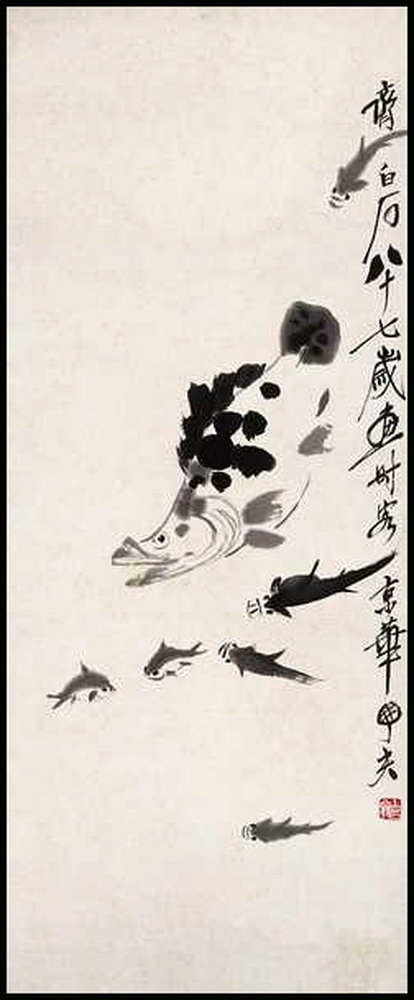 齊白石八十七歲畫時客京華